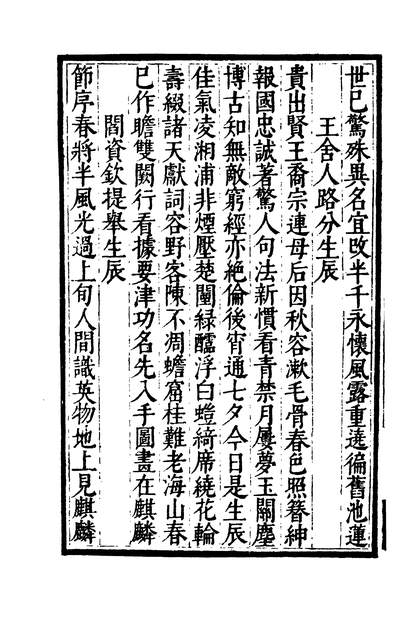 世已驚殊異名宜改半千永懷風露重遶徧舊池蓮
王舍人路分生辰
貴出賢王裔宗連母后因秋容漱毛骨春色照簪紳
報國忠誠著驚人句法新慣看青禁月屢夢玉關塵
博古知無敵窮經亦絶倫後宵通七夕今日是生辰
佳氣凌湘浦非煙壓楚闉緑醽浮白螘綺席繞花輪
壽綴諸天獻詞容野客陳不凋蟾窟桂難老海山春
已作瞻雙闕行看據要津功名先入手圖畫在麒麟
閻資欽提舉生辰
節序春將半風光過上旬人間識英物地上見麒麟